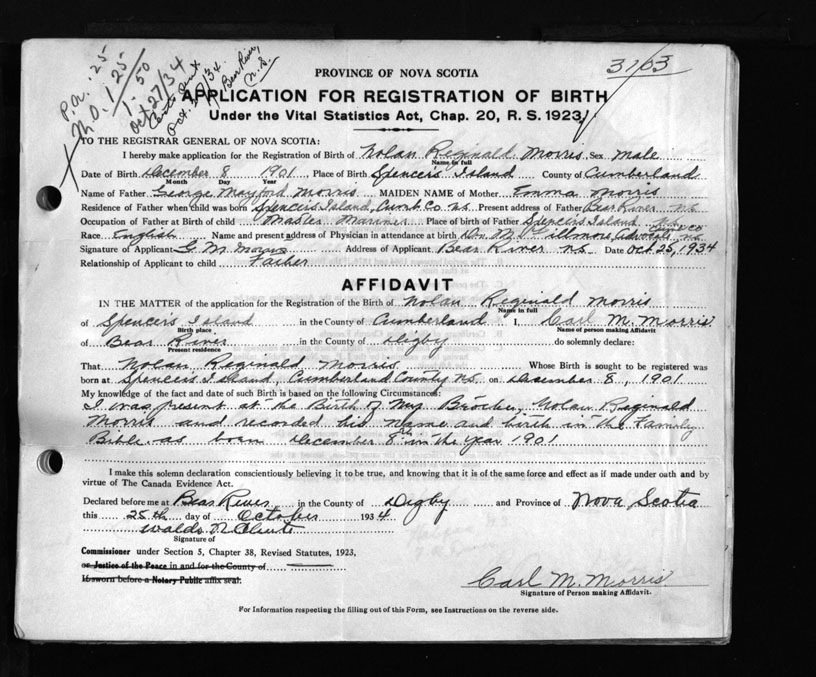 P.a. .25
M.O. 1.25
1.50
Oct 27/34
Oct. 30/34.
Bear River,
N.S.
3103
PROVINCE OF NOVA SCOTIA
APPLICATION FOR REGISTRATION OF BIRTH
Under the Vital Statistics Act, Chap. 20, R. S. 1923
TO THE REGISTRAR GENERAL OF NOVA SCOTIA:
I hereby make application for the Registration of Birth of Nolan Reginald Morris Sex Male
Name in full
Date of Birth December 8 1901 Place of Birth Spencer's Island County of Cumberland
Month Day Year
Name of Father George Mayford Morris MAIDEN NAME of Mother Emma Morris
Residence of Father when child was born Spencer's Island, Cumb. Co. N.S. Present address of Father Bear River N.S.
Occupation of Father at Birth of child Master Mariner Place of birth of Father Spencer's Island
Race English Name and present address of Physician in attendance at birth Dr. M. Fillmore, Advocate N.S.
Signature of Applicant G. M. Morris Address of Applicant Bear River N.S. Date Oct 25, 1934
Relationship of Applicant to child Father
AFFIDAVIT
IN THE MATTER of the application for the Registration of the Birth of Nolan Reginald Morris
Name in full
of Spencer's Island in the County of Cumberland I, Carl M. Morris
Birth place Name of person making Affidavit
of Bear River in the County of Digby do solemnly declare:
Present residence
That Nolan Reginald Morris Whose Birth is sought to be registered was
born at Spencer's Island, Cumberland County N.S. on December 8, 1901
My knowledge of the fact and date of such Birth is based on the following Circumstances:
I was present at the Birth of my Brother, Nolan Reginald
Morris and recorded his name and birth in the Family
Bible as born December 8th in the year 1901
I make this solemn declaration conscientiously believing it to be true, and knowing that it is of the same force and effect as if made under oath and by
virtue of The Canada Evidence Act.
Declared before me at Bear River in the County of Digby and Province of Nova Scotia
this 25th day of October 1934
Waldo N. Clute
Signature of
Commissioner under Section 5, Chapter 38, Revised Statutes, 1923,
or Justice of the Peace in and for the County of
If sworn before a Notary Public affix seal.
Carl M. Morris
Signature of Person making Affidavit.
For Information respecting the filling out of this Form, see Instructions on the reverse side.